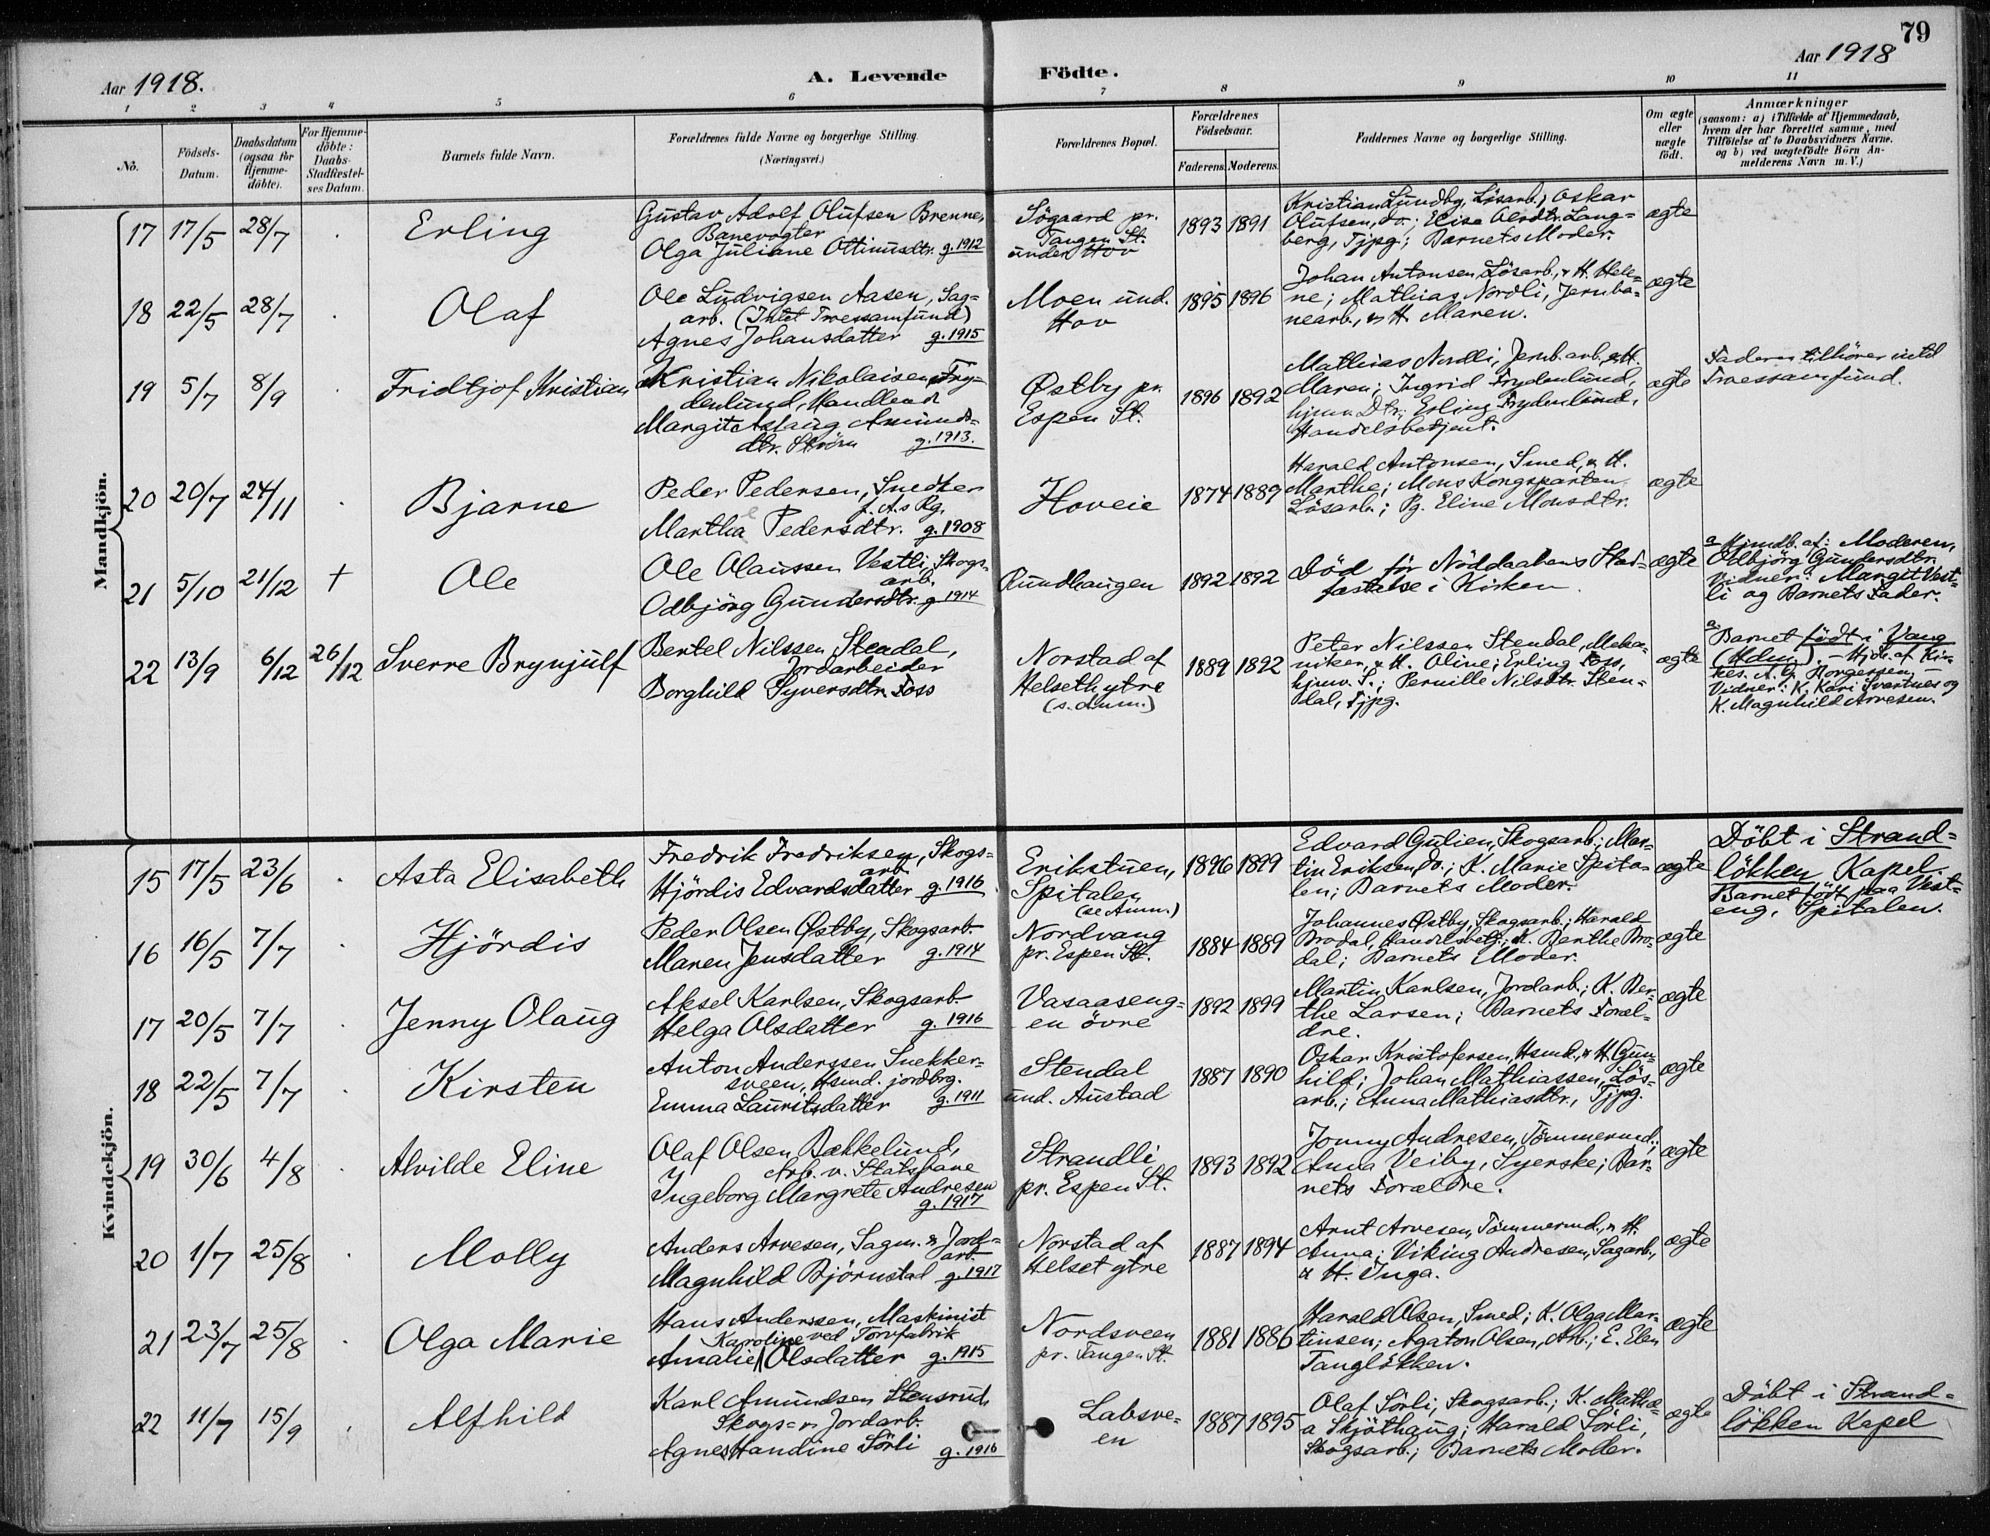 79
Aar 1918.
A. Levende
Födte.
Aar 1918
1 2 3 4 5 6 7 8 9 10 11
No.
Födsels-
Datum.
Daabsdatum
(ogsaa for
Hjemme-
döbte).
For Hjemme-
döbte:
Daabs-
Stadfæstel-
ses Datum.
Barnets fulde Navn.
Forældrenes fulde Navne og borgerlige Stilling.
(Næringsvei.)
Forældrenes Bopæl.
Forældrenes
Födselsaar.
Faderens.
Moderens.
Faddernes Navne og borgerlige Stilling.
Om ægte
eller
uægte
født.
Anmærkninger
(saasom: a) i Tilfælde af Hjemmedaab,
hvem der har forrettet samme, med
Tilföielse af to Daabsvidners Navne.
og b) ved uægtefödte Börn An-
melderens Navn m. V.)
Mandkjön.
17 17/5 28/7 . Erling
Gustav Adolf Olufsen Brenne,
Banevogter
Olga Juliane Ottinusdtr. g. 1912
Sögaard pr.
Tangen St.
under Hov
1893 1891
Kristian Lundby, Lösarb.; Oskar
Olufsen, do; Elise Lang-
berg, Tjpg; Barnets Moder.
ægte
18 22/5 28/7 . Olaf
Ole Ludvigsen Aasen, Sag-
arb. (Intet Troessamfund)
Agnes Johansdatter g. 1915
Moen und.
Hov
1895 1896
Johan Antonsen, Lösarb., & H. Hele-
ne; Mathias Nordli, Jernba-
nearb., & H. Maren.
ægte
19 5/7 8/9 . Fridtjof Kristian
Kristian Nikolaisen Fry-
denlund, Handlende
Margit Aslaug Amunds-
dtr. Ström g. 1913.
Østby pr.
Espen St.
1896 1892
Mathias Nordli, Jernb.arb. & H.
Maren; Ingrid Frydenlund,
hjemv. Dtr; Erling Frydenlund,
Handelsbetjent.
ægte
Faderen tilhörer intet
Troessamfund.
20 20/7 24/11 . Bjarne
Peder Pedersen, Snedker
Martha Pedersdtr. g. 1908
Hoveie
1874 1889
Harald Antonsen, Smed, & H.
Marthe; Mons Kongsparten
Lösarb.; Pg. Eline Monsdtr.
ægte
21 5/10 21/12 + Ole
Ole Olaussen Vestli, Skogs-
arb.
Odbjörg Gundersdtr. g 1914
Rundhaugen
1892 1892
Död för Nöddaabens Stad-
fæstelse i Kirken.
ægte
a Hjmdb. af: Moderen,
Odbjörg Gundersdtr.
Vidner: Margit Vest-
li og Barnets Fader.
22 13/9 6/12 26/12 Sverre Brynjulf
Bertel Nilssen Stendal,
Jordarbeider
Borghild Syversdtr. Foss
Norstad af
Helseth ytre
(s. Anm.)
1889 1892
Peter Nilssen Stendal, Meka-
niker, & H. Oline; Erling Foss,
hjemv. S.; Pernille Nilsdtr. Sten-
dal, Tjpg.
ægte
a Barnet født i Vang
(Hdm). - Hjdb. af Kir-
kes. A. G. Borgersen
Vidner: K. Kari Svartnes og
K. Magnhild Arvesen.
Kvindekjön.
15 17/5 23/6 . Asta Elisabeth
Fredrik Fredriksen, Skogs-
arb.
Hjördis Edvardsdatter g. 1916
Erikstuen,
Spitalen
(se Anm.)
1896 1899
Edvard Gulien, Skogsarb.; Mar-
tin Eriksen, Do.; K. Marie Spita-
len; Barnets Moder.
ægte
Döbt i Strand-
løkken Kapel.
Barnet födt paa Vest-
eng, Spitalen.
16 16/5 7/7 . Hjördis
Peder Olsen Østby, Skogsarb.
Maren Jensdatter g. 1914
Nordvang
pr. Espen St.
1884 1889
Johannes Østby, Skogsarb.; Harald
Brodal, Handelsbetj.; K. Berthe Bro-
dal; Barnets Moder.
ægte
17 20/5 7/7 . Jenny Olaug
Aksel Karlsen, Skogsarb.
Helga Olsdatter g. 1916
Vasaaseng-
en övre
1892 1899
Martin Karlsen, Jordarb.; K. Ber-
the Larsen; Barnets Foræl-
dre.
ægte
18 22/5 7/7 . Kirsten
Anton Anderssen Snekker-
sveen, Hsmd. jordbrg.
Emma Lauritsdatter g. 1911
Stendal
und. Austad
1887 1890
Oskar Kristofersen, Hsmd., & H. Gun-
hild; Johan Mathiassen, Lös-
arb.; Anna Mathiasdtr., Tjpg.
ægte
19 30/6 4/8 . Alvilde Eline
Olaf Olsen Bækkelund,
Arb. v. Statsbane
Ingeborg Margrete Andresen
g. 1917
Strandli
pr. Espen St.
1893 1892
Jonny Andresen, Tömmermd.;
Anna Veiby, Syerske; Bar-
nets Forældre.
ægte
20 1/7 25/8 . Molly
Anders Arvesen, Sagm. & Jord-
arb.
Magnhild Björnstad g. 1917
Norstad af
Helset ytre
1887 1894
Arnt Arvesen, Tömmermd., & H.
Anna; Viking Andresen, Sagarb.,
& H. Inga.
ægte
21 23/7 25/8 . Olga Marie
Hans Anderssen, Maskinist
ved Torvfabrik
Amalie Karoline Olsdatter g. 1915
Nordsveen
pr. Tangen St.
1881 1886
Harald Olsen, Smed; K. Olga Mar-
tinsen; Agaton Olsen, Arb.; E. Elen
Tangløkken.
ægte
22 11/7 15/9 . Alfhild
Karl Amundsen Stensrud,
Skogs- & Jordarb.
Agnes Handine Sörli g. 1916
Labsve-
en
1887 1895
Olaf Sörli, Skogsarb.; K. Mathe-
a Skjöthaug; Harald Sörli,
Skogsarb.; Barnets Moder.
ægte
Döbt i Strand-
løkken Kapel